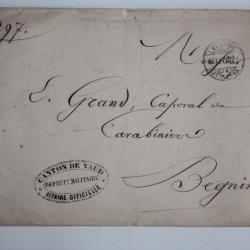 297.
L. Grand, Caporal de
Carabiniers
Begnin
CANTON DE VAUD
DÉPART. MILITAIRE
AFFAIRE OFFICIELLE